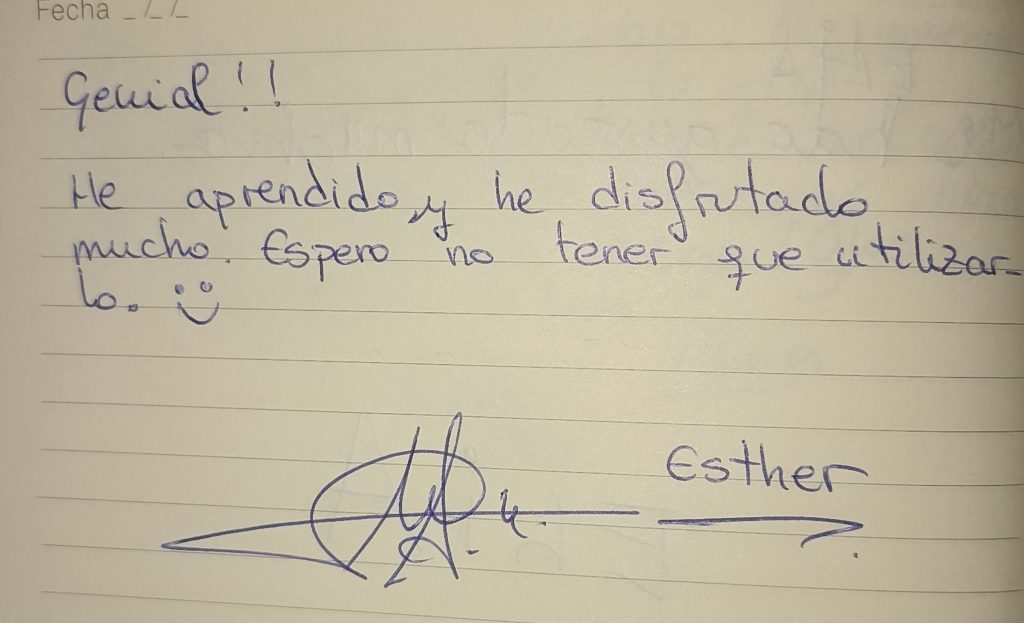 Fecha _/_/_
Genial!!
He aprendido y he disfrutado
mucho. Espero no tener que utilizar-
lo. :)
Esther